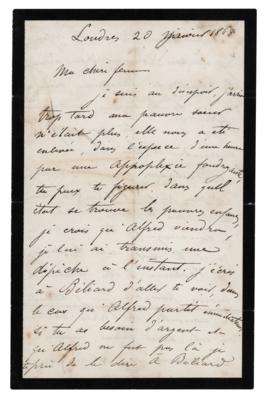 Londres 20 janvier
Ma chère femme
je suis au désespoir, j'arrive
trop tard ma pauvre soeur
n'était plus, elle nous a été
enlevée, dans l'espace d'une heure
par une Appoplexie foudroyante,
tu peux te figurer, dans quel
état se trouve les pauvres enfants,
je crois qu'Alfred viendra,
je lui ai transmis une
dépêche à l'instant. j'écris
à Béliard d'aller te voir, dans
le cas qu'Alfred partit
si tu as besoin d'argent et
qu'Alfred ne fut pas là je
te prie de le dire à Béliard